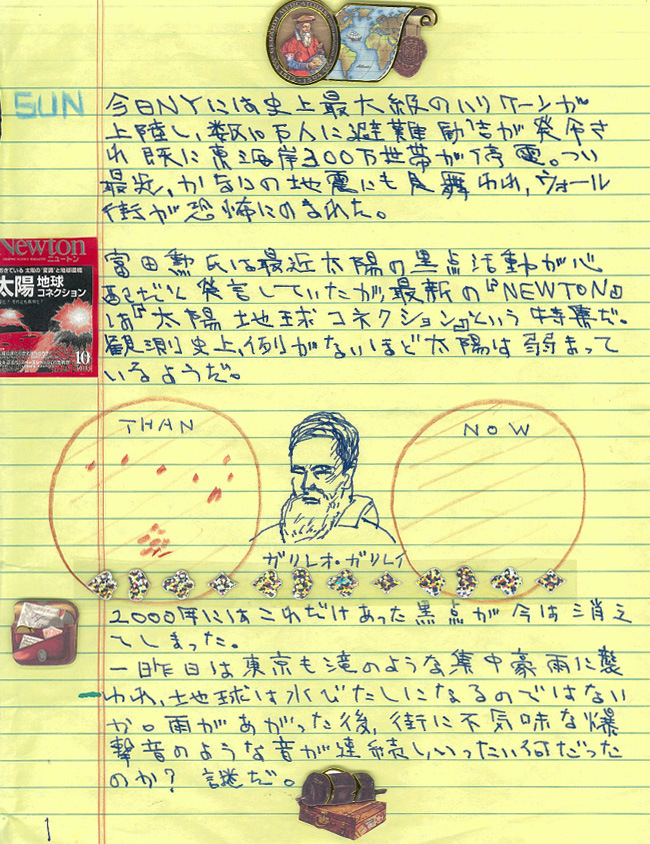 SUN
今日NYには史上最大級のハリケーンが
上陸し、数10万人に避難勧告が発令さ
れ既に東海岸300万世帯が停電。つい
最近、かなりの地震にも見舞われ、ウォール
街が恐怖にのまれた。
Newton
ニュートン
太陽 地球
コネクション
10
富田勲氏は最近太陽の黒点活動が心
配だと発言していたが、最新の『NEWTON』
は『太陽 地球コネクション』という特集だ。
観測史上、例がないほど太陽は弱まって
いるようだ。
THAN
NOW
ガリレオ・ガリレイ
2000年にはこれだけあった黒点が今は消え
てしまった。
一昨日は東京も滝のような集中豪雨に襲
われ、地球は水びたしになるのではない
か。雨があがった後、街に不気味な爆
撃音のような音が連続し、いったい何だった
のか? 謎だ。
1